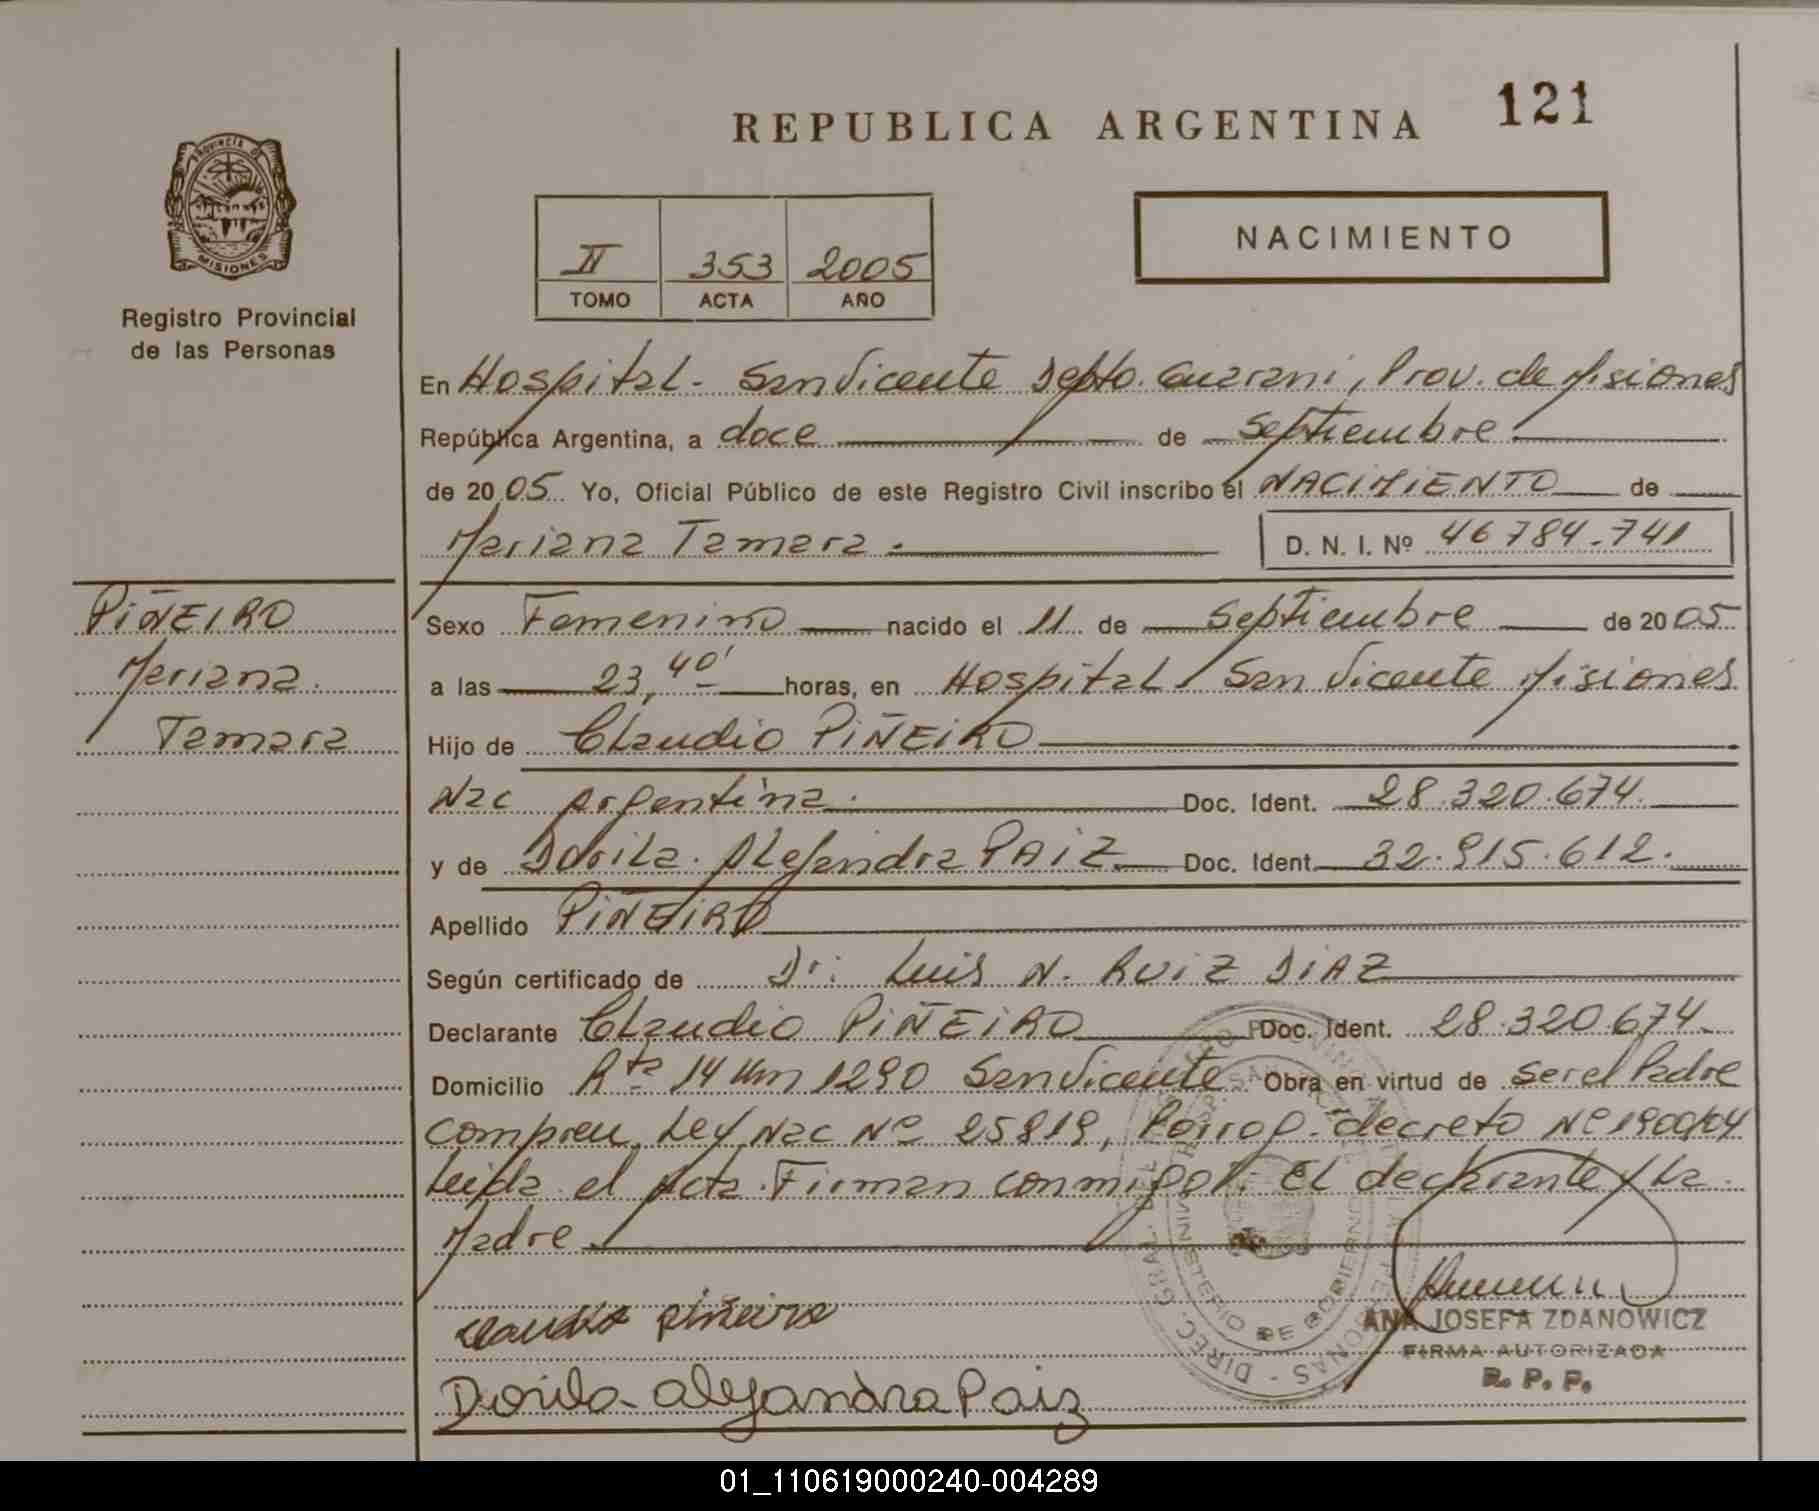 REPUBLICA ARGENTINA 121
PROVINCIA DE
MISIONES
Registro Provincial
de las Personas
II 353 2005
TOMO ACTA AÑO
NACIMIENTO
En Hospital - San Vicente Depto. Guarani, Prov. de Misiones
República Argentina, a doce de Septiembre
de 20 05 Yo, Oficial Público de este Registro Civil inscribo el NACIMIENTO de
Mariana Tamara. D. N. I. Nº 46 784.741
PIÑEIRO
Mariana
Tamara
Sexo Femenino nacido el 11 de Septiembre de 20 05
a las 23,40' horas, en Hospital San Vicente Misiones
Hijo de Claudio PIÑEIRO
Nac Argentina. Doc. Ident. 28.320.674.
y de Dorila Alejandra PAIZ Doc. Ident. 32.915.612.
Apellido PIÑEIRO
Según certificado de Dr: Luis N. RUIZ DIAZ
Declarante Claudio PIÑEIRO Doc. Ident. 28.320.674
Domicilio Rta 14 Km 1290 San Vicente Obra en virtud de ser el Padre
compren. Ley Nac Nº 25819, Prorrog. decreto Nº 1900/04
Leida el Acta. Firman conmigo: El declarante y la
Madre
Claudio piñeiro
Dorila alejandra Paiz
ANA JOSEFA ZDANOWICZ
FIRMA AUTORIZADA
R. P. P.
MINISTERIO DE GOBIERNO
01_110619000240-004289